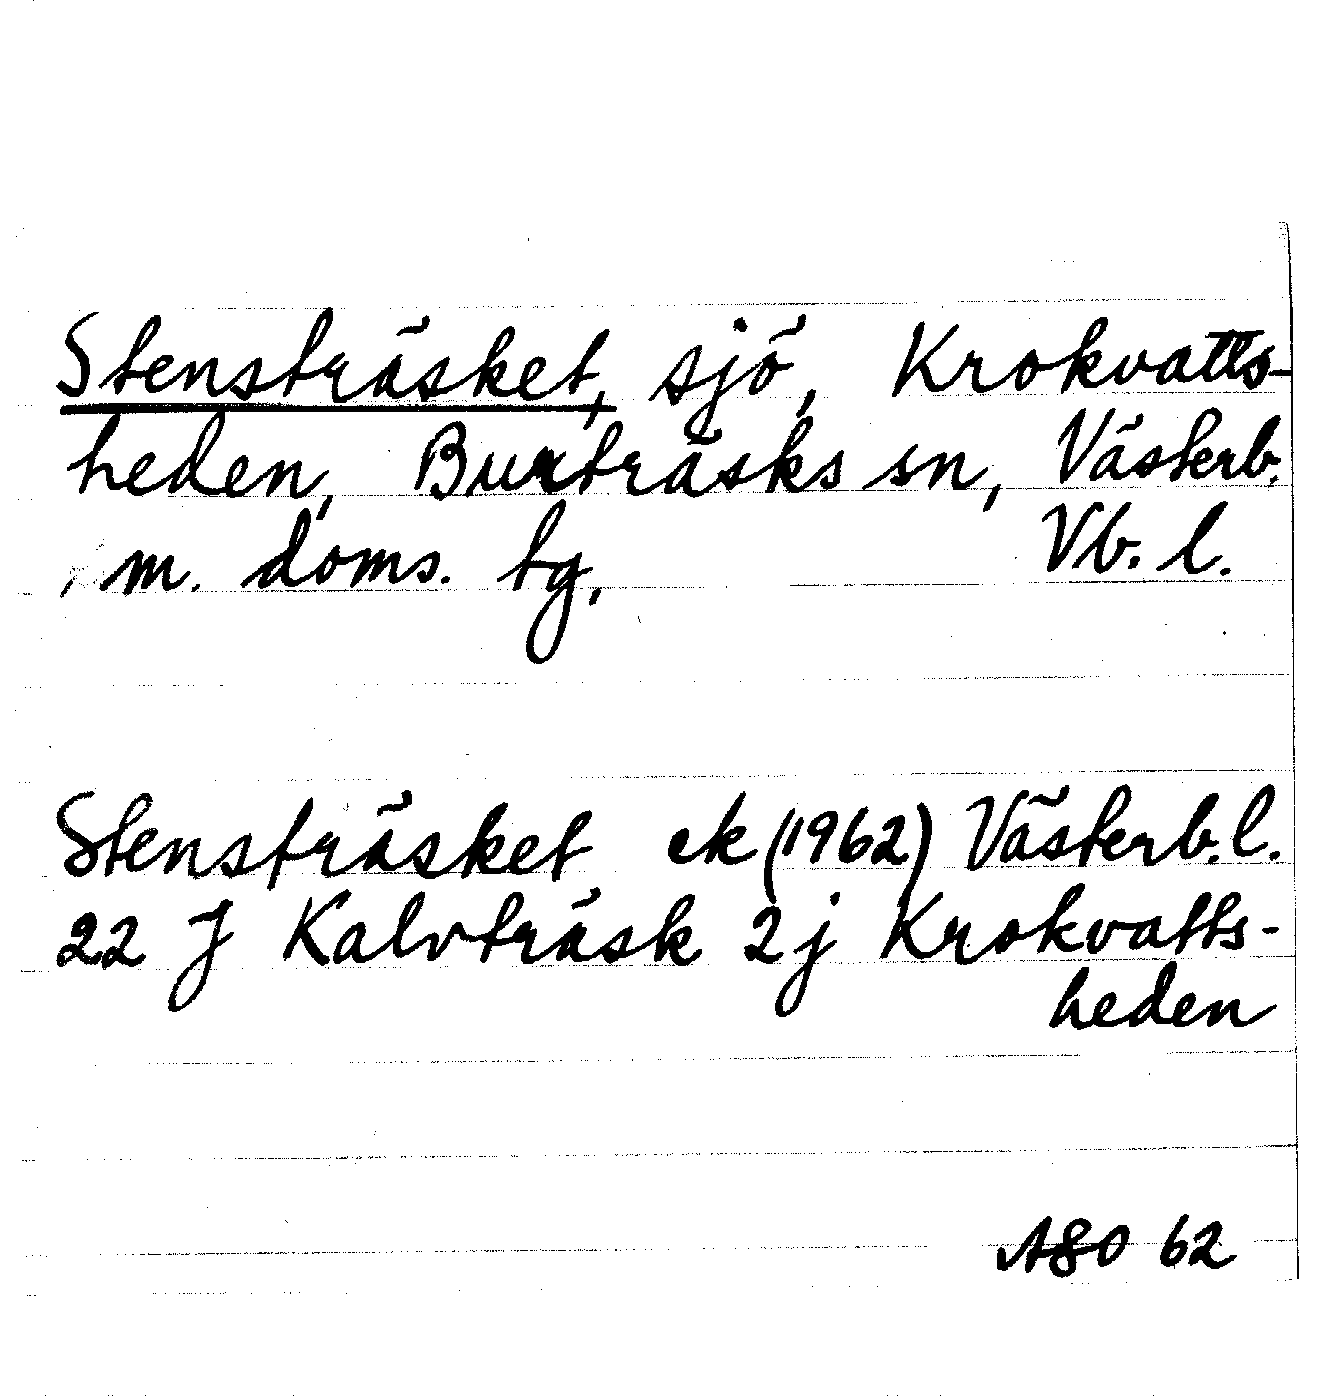 Stensträsket, sjö, Krokvatts-
heden, Burträsks sn, Västerb.
m. doms. tg, Vb. l.
Stensträsket ek (1962) Västerb. l.
22 J Kalvträsk 2j Krokvatts-
heden
ASO 62